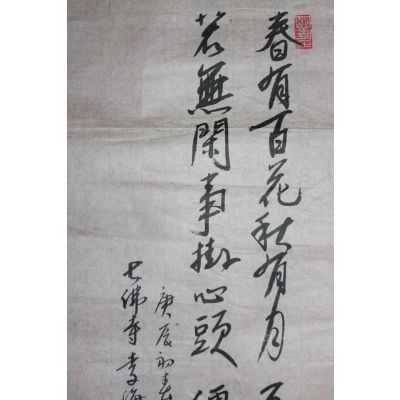 春有百花秋有月
若無閑事掛心頭
庚辰初春
七佛寺 李海